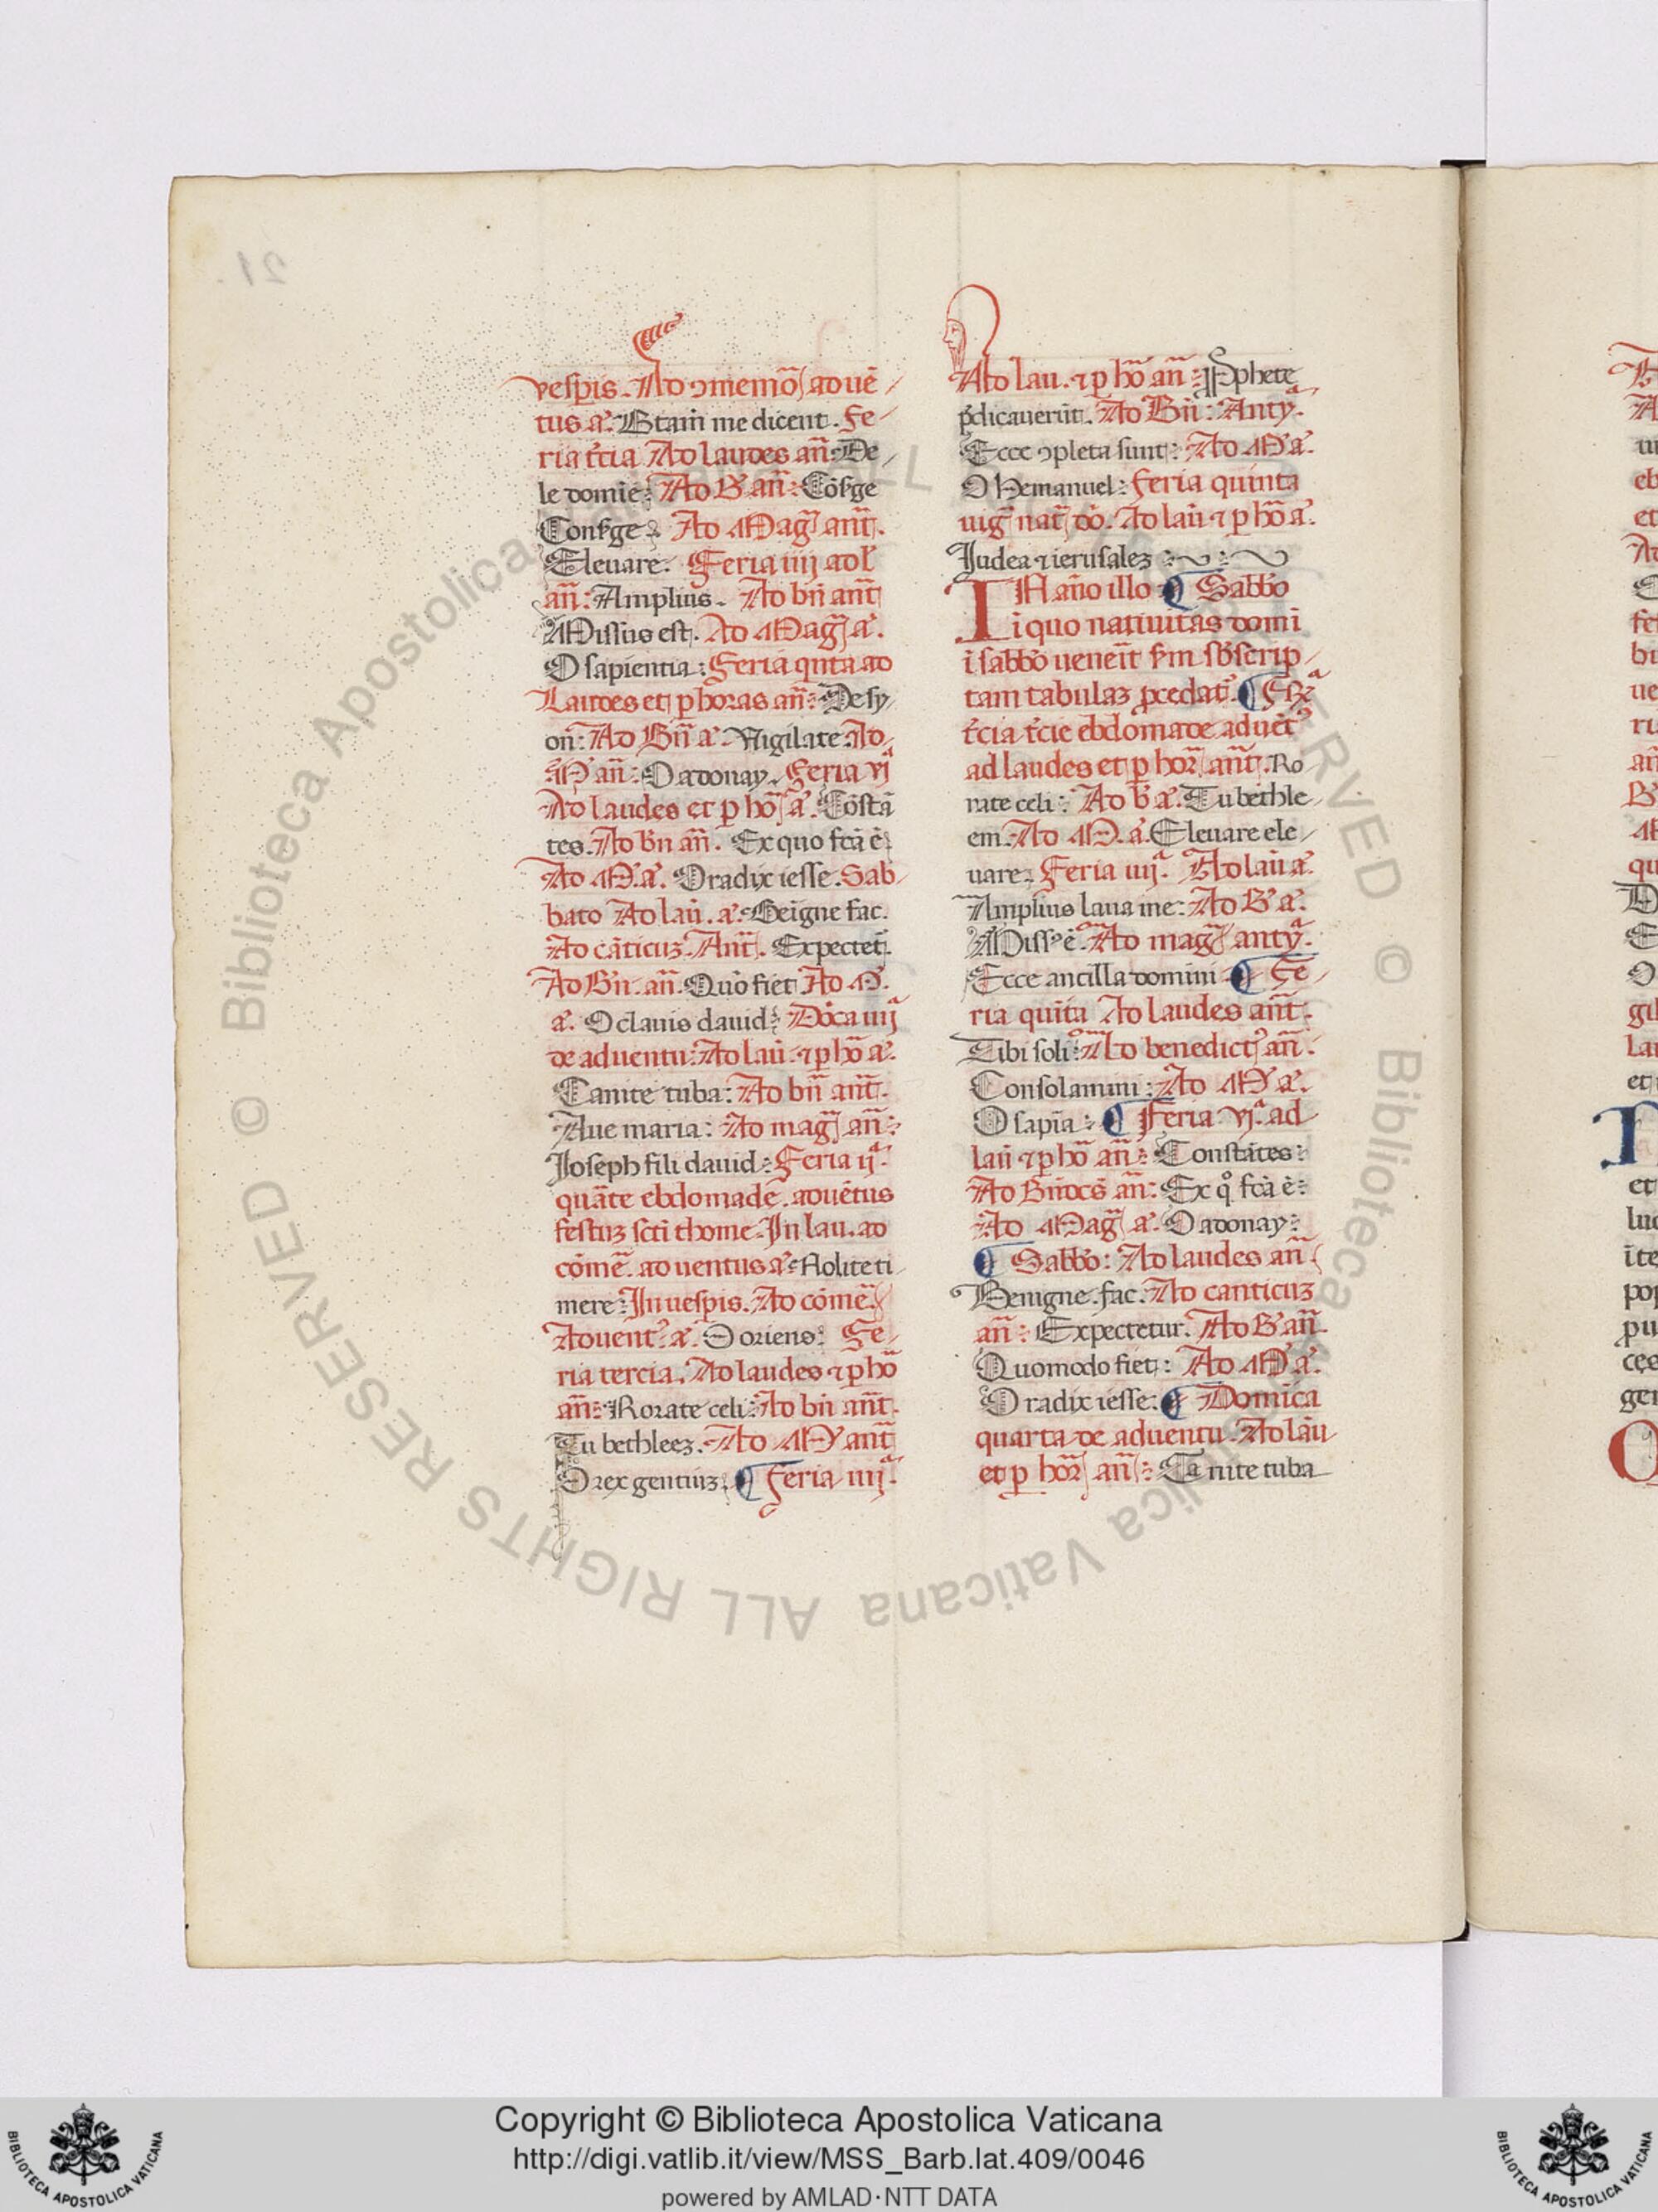 vespis. Ad ꝯmemõ aduẽ
tus a᷑. Btam̃ me dicent. Fe
ria t̃cia Ad laudes añ: De
le domiẽ: Ad B᷑ añ: Cõsge
Consge: Ad Mag̃ ant̃.
Eleuare. Feria iiij ad l᷑
añ: Amplius. Ad bñ ant̃
Missus est. Ad Mag̃ a᷑.
O sapientia: Feria qnta ad
Laudes et p horas añ: De sy
on: Ad Bñ a᷑. Vigilate. Ad
M añ: O adonay. Feria vjª
Ad laudes et p hõ a᷑. Cõstã
tes. Ad bñ añ. Ex quo fcã ẽ
Ad M. a᷑. O radix iesse. Sab
bato Ad laũ. a᷑. Beĩgne fac.
Ad cãticuz. Ant̃. Expectet᷑.
Ad Bñ. añ. Quõ fiet Ad M.
a᷑. O clauis dauid: Dõca iiijª
de aduentu: Ad laũ. ⁊ p hõ a᷑.
Canite tuba: Ad bñ ant̃.
Aue maria: Ad mag̃ añ:
Joseph fili dauid: Feria ijª.
quãte ebdomade. aduẽtus
festuz scti thome. In lau. ad
cõmẽ. aduentus a᷑. Nolite ti
mere: In vespis. Ad cõmẽ
Aduent᷑. a᷑. O oriens: Fe
ria tercia. Ad laudes ⁊ p hõ
añ: Rorate celi: Ad bñ ant̃.
Tu bethleez. Ad M ant̃
O rex gentiuz. ¶ Feria iiijª.
Ad lau. ⁊ p hõ añ: Pphete
pdicauerũt. Ad Bñ: Antyª.
Ecce ꝯpleta sunt: Ad M a᷑.
O Hemanuel: Feria quinta
uig̃ nat̃ dõ. Ad laũ ⁊ p hõ a᷑.
Judea ⁊ ierusalez
IN año illo ¶ Sabbõ
i quo natiuitas domi
i sabbo ueneĩt sm sbscrip
tam tabulaz pcedat᷑. ¶ Fẽrª
t̃cia t̃cie ebdomade aduẽt᷑
ad laudes et p hor̃ ant̃. Ro
rate celi: Ad b a᷑. Tu bethle
em. Ad M. a᷑. Eleuare ele
uare. Feria iiijª. Ad laũ a᷑.
Amplius laua me: Ad B a᷑.
Miss᷑ ẽ. Ad mag̃ antyª.
Ecce ancilla domini ¶ Fe
ria quĩta Ad laudes ant̃.
Tibi soli: Ad benedict᷑ añ.
Consolamini: Ad M a᷑.
O sapĩa: ¶ Feria vjª. ad
laũ ⁊ p hõ añ: Constãtes:
Ad Bñdcs añ: Ex qº fcã ẽ:
Ad Mag̃ a᷑. O adonay:
¶ Sabbõ: Ad laudes añ
Benigne. fac. Ad canticuz
añ: Expectetur. Ad B᷑ añ
Quomodo fiet: Ad M a᷑.
O radix iesse. ¶ Domĩca
quarta de aduentu. Ad laũ
et p hor̃ añ: Ca nite tuba
Copyright © Biblioteca Apostolica Vaticana
http://digi.vatlib.it/view/MSS_Barb.lat.409/0046
powered by AMLAD·NTT DATA